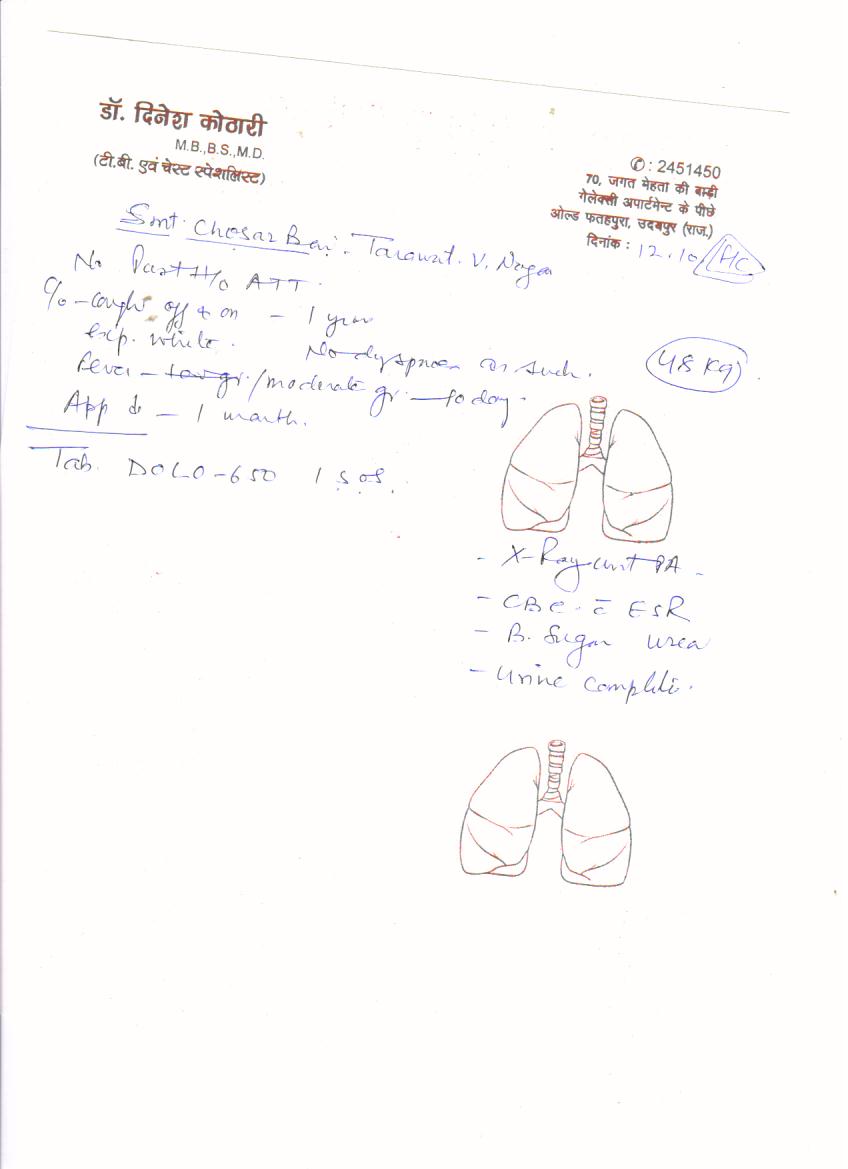 डॉ. दिनेश कोठारी
M.B.,B.S.,M.D.
(टी.बी. एवं चेस्ट स्पेशलिस्ट)
✆ : 2451450
70, जगत मेहता की बाड़ी
गेलेक्सी अपार्टमेन्ट के पीछे
ओल्ड फतहपुरा, उदयपुर (राज.)
दिनांक : 12.10
Smt. Chosar Bai. Tarawat. V. Nagar
No Past H/o ATT.
C/o - cough off + on - 1 year
exp. white. No dyspnoea as such. 48 Kg
fever - low gr. / moderate gr. - 10 day.
App ↓ - 1 month.
Tab. DOLO-650 1 SOS.
- X-Ray PA -
- CBC. c̄ ESR
- B. Sugar urea
- Urine complete.